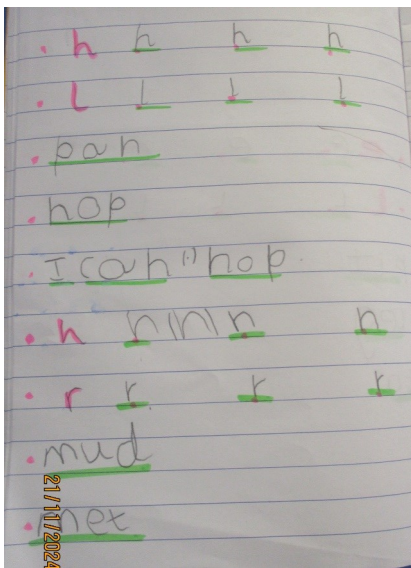 h h h h
l l l l
pan
hop
I can (·) hop.
n n (n) n n
r r r r
mud
met
21/11/2024